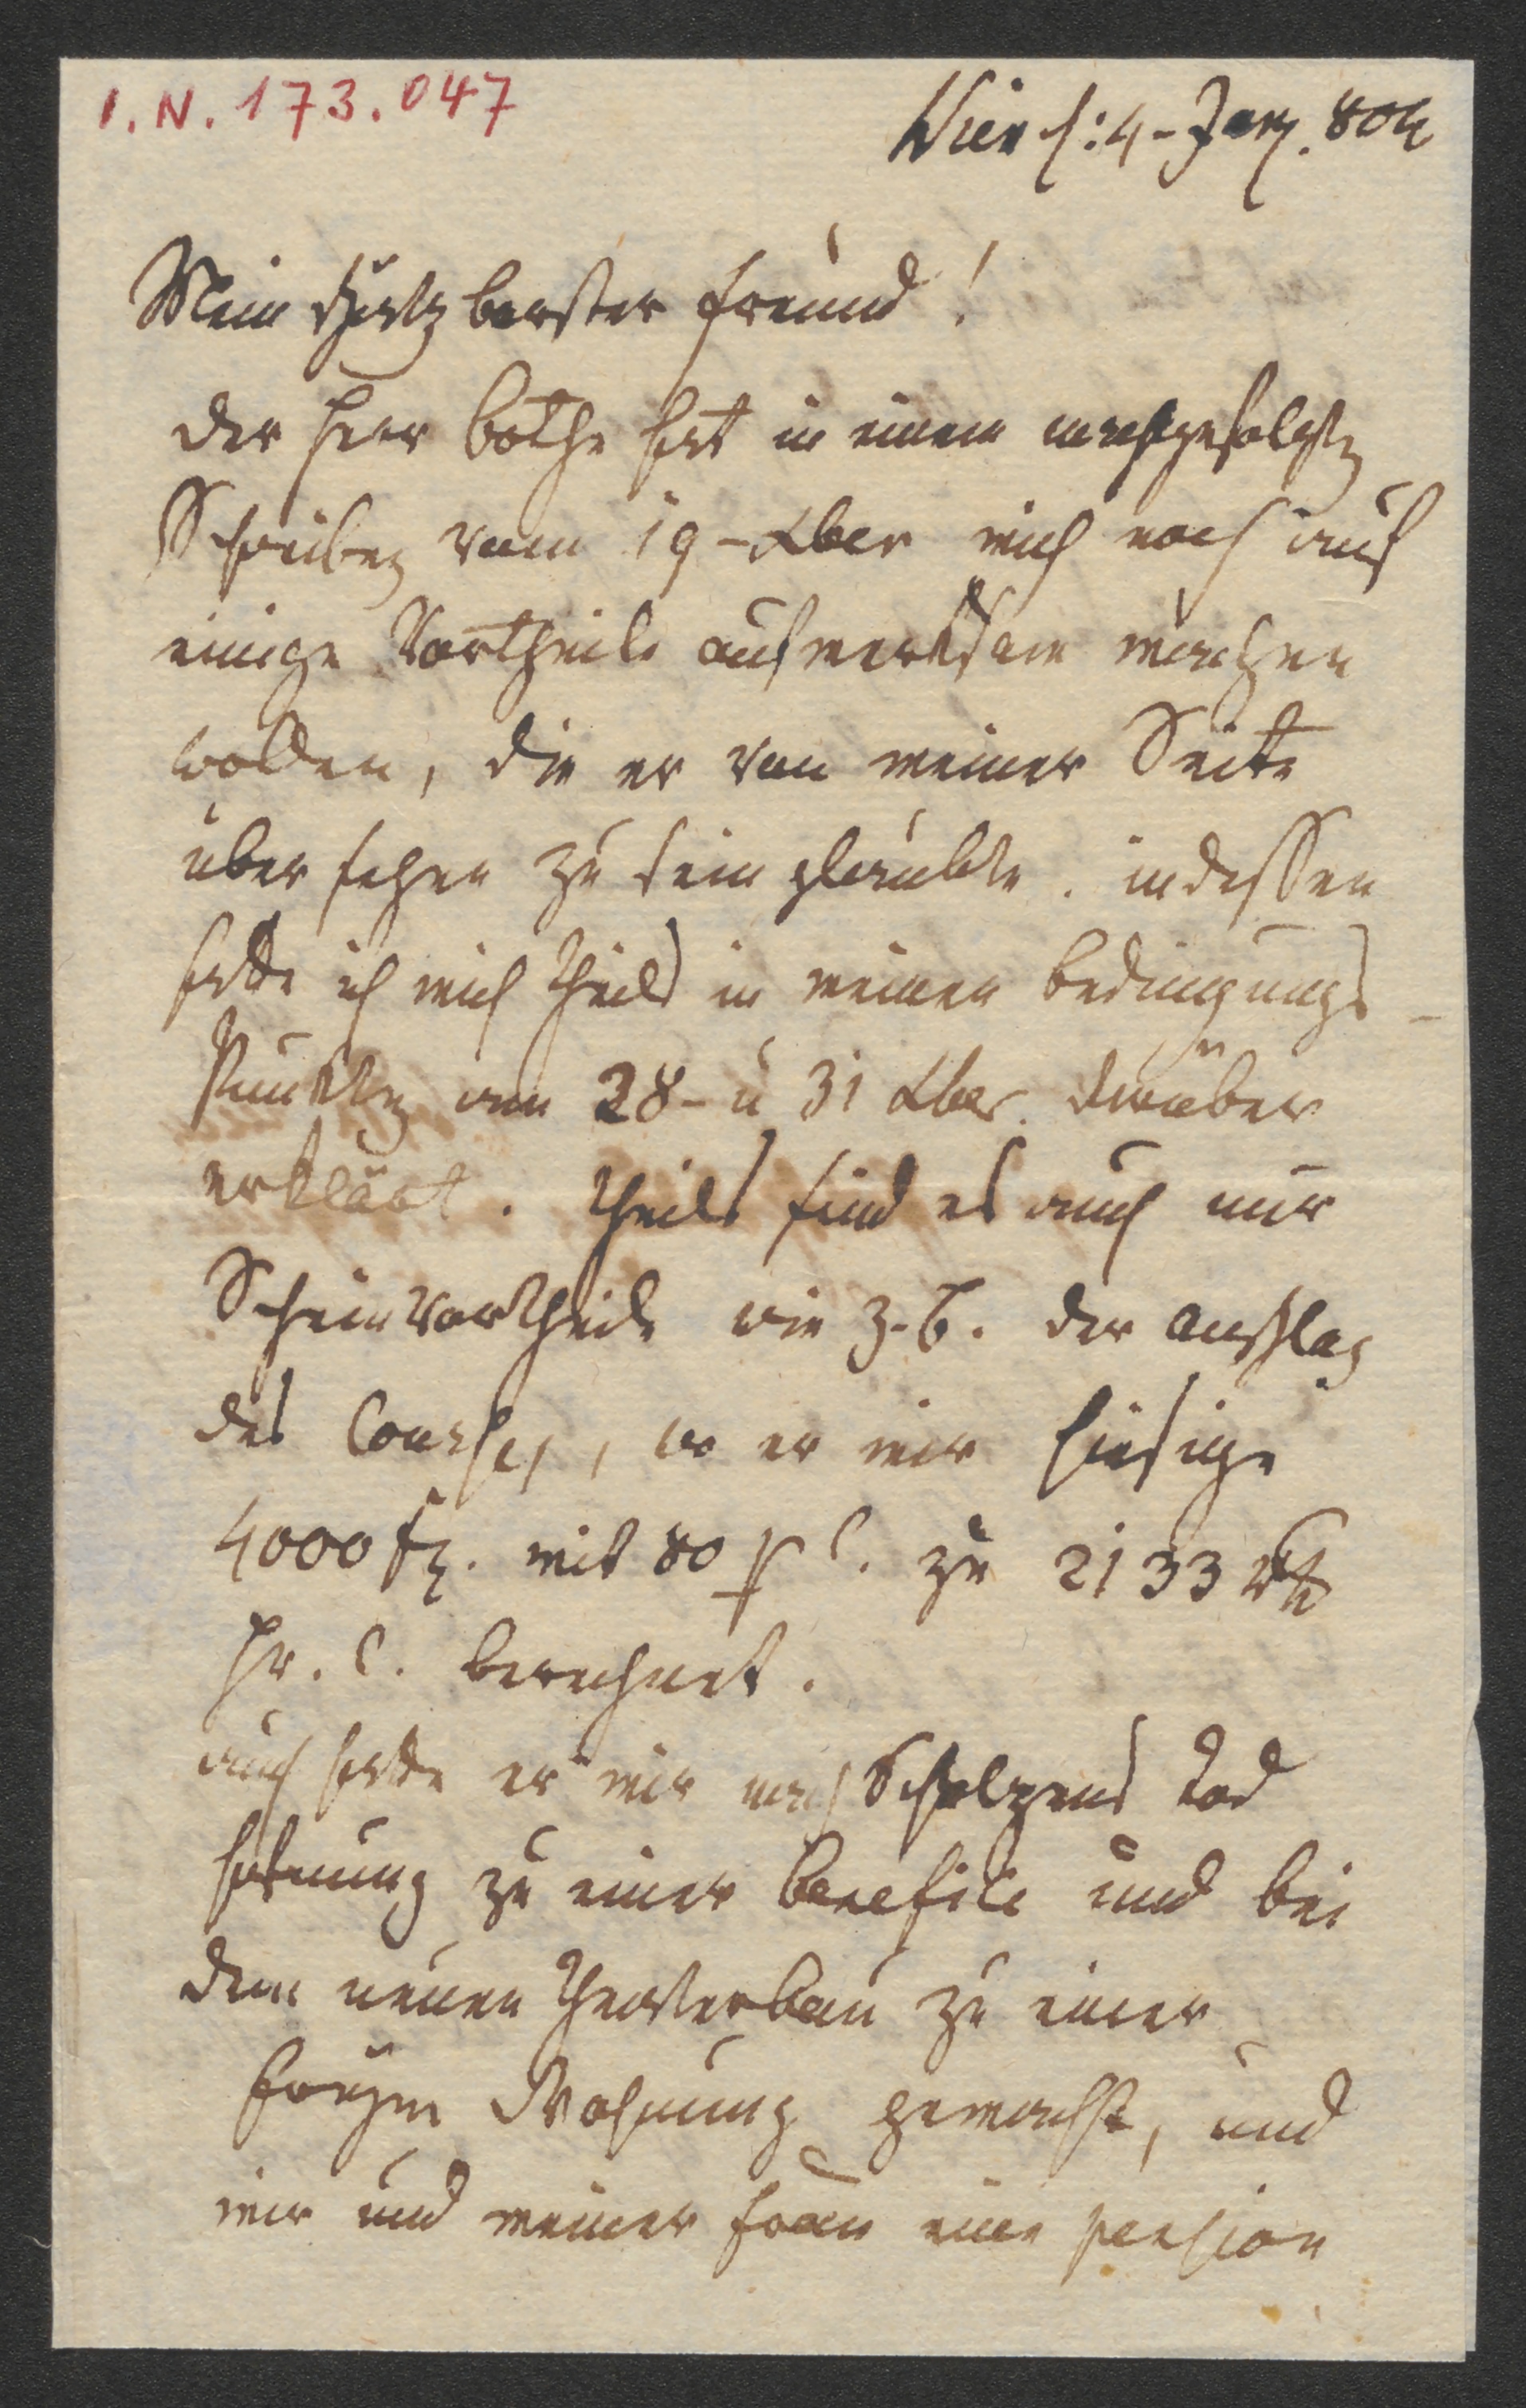 I.N. 173.047
Wien d: 4- Jan. 804
Mein schätzbarster Freund!
der Herr Bothe hat in einem nachgefolgten
Schreiben vom 19-Xber mich noch auf
einige Vortheile aufmerksam machen
wollen, die er von meiner Seite
übersehen zu sein glaubte. indessen
hatte ich mich theils in meinen Bedingungs-
Punkten am 28- u 31 Xber. darüber
erklärt. theils sind es auch nur
Scheinvortheile wie z-B. der Anschlag
des Courses, wo er mir hiesige
4000 f. mit 80 p C. zu 2133 rth
Pr. C. berechnet.
auch hatte er mir nach Scholzens Tod
Hofnung zu einer Benefice und bei
dem neuen Theaterbau zu einer
freyen Wohnung gemacht, und
mir und meiner Frau eine pension